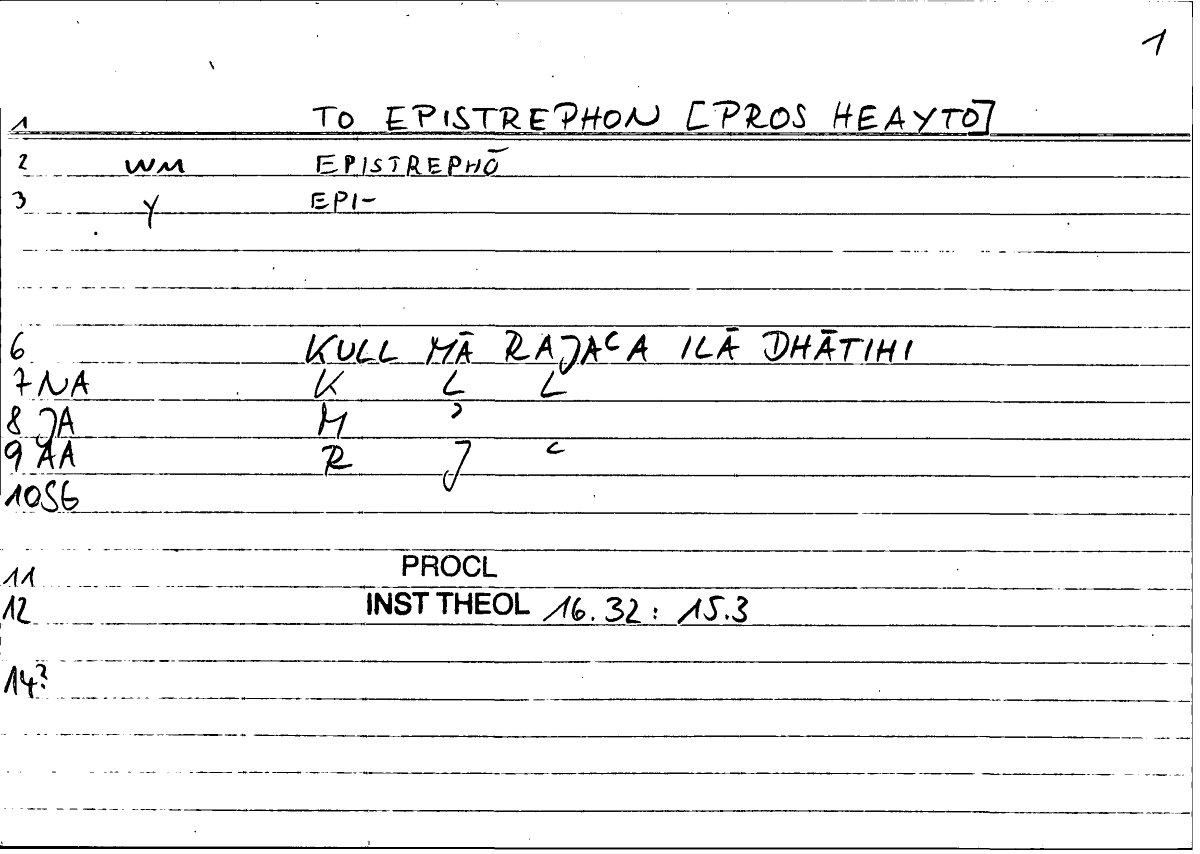 1
1 TO EPISTREPHON [PROS HEAYTO]
2 WM EPISTREPHŌ
3 Y EPI-
6 KULL MĀ RAJAᶜA ILĀ DHĀTIHI
7 NA K L L
8 JA M ʾ
9 AA R J ᶜ
10 SG
11 PROCL
12 INST THEOL 16.32: 15.3
14?